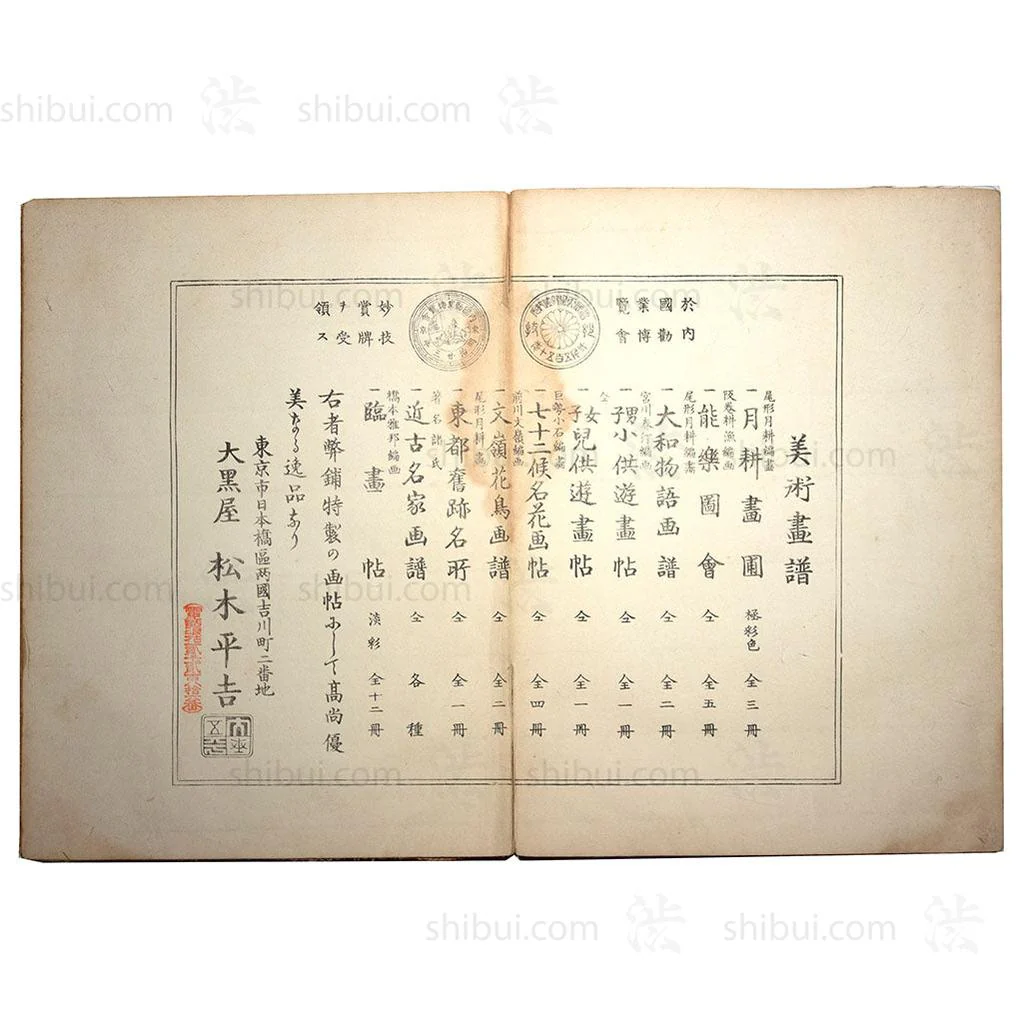 於内
國勸
業博
覽會
妙技
賞牌
ヲ受
領ス
美術畫譜
尾形月耕編畫
一月耕畫圃 極彩色 全三冊
一能樂圖會 仝 全五冊
尾形月耕編畫
一大和物語画譜 仝 全二冊
宮川春汀編画
一男子小供遊畫帖 仝 全一冊
仝
一女子兒供遊畫帖 仝 全一冊
巨勢小石編畫
一七十二候名花画帖 仝 全四冊
前川文嶺編画
一文嶺花鳥画譜 仝 全二冊
尾形月耕畫
一東都舊跡名所 仝 全一冊
著名諸氏
一近古名家画譜 仝 各種
橋本雅邦編画
一臨畫帖 淡彩 全十二冊
右者弊鋪特製の画帖にして高尚優
美なる逸品なり
東京市日本橋區两國吉川町二番地
大黒屋 松木平吉
shibui.com 渋 shibui.com 渋
shibui.com 渋 shibui.com 渋
shibui.com 渋 shibui.com 渋
shibui.com 渋 shibui.com 渋
shibui.com 渋 shibui.com 渋
shibui.com 渋 shibui.com 渋